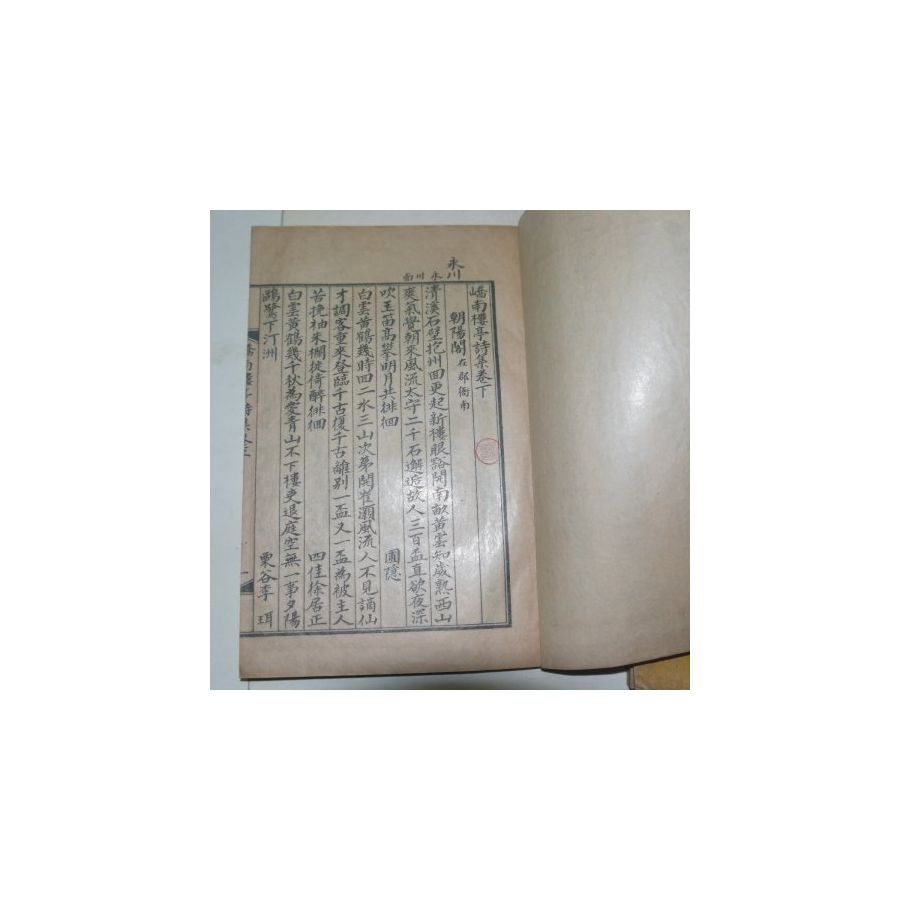 永川
永川南
嶠南樓亭詩集卷下
朝陽閣 在郡衙南
清溪石壁抱州回更起新樓眼豁開南畝黃雲知歲熟西山
爽氣覺朝來風流太守二千石邂逅故人三百盃直欲夜深
吹玉笛高攀明月共徘徊 圃隱
白雲黃鶴幾時回二水三山次第開崔灝風流人不見謫仙
才調客重來登臨千古復千古離別一盃又一盃為被主人
苦挽袖朱欄徙倚醉徘徊 四佳徐居正
白雲黃鶴幾千秋為愛青山不下樓吏退庭空無一事夕陽
鷗鷺下汀洲 栗谷李珥